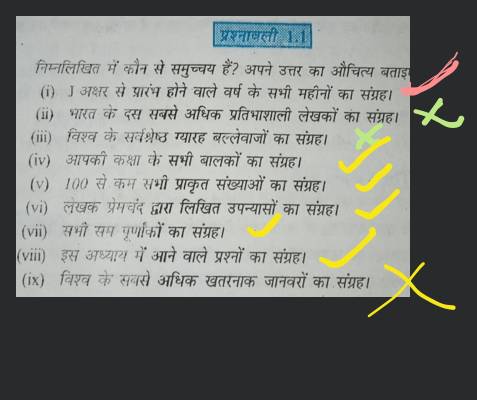 प्रश्नावली 1.1
निम्नलिखित में कौन से समुच्चय हैं? अपने उत्तर का औचित्य बताइ
(i) J अक्षर से प्रारंभ होने वाले वर्ष के सभी महीनों का संग्रह।
(ii) भारत के दस सबसे अधिक प्रतिभाशाली लेखकों का संग्रह।
(iii) विश्व के सर्वश्रेष्ठ ग्यारह बल्लेबाजों का संग्रह।
(iv) आपकी कक्षा के सभी बालकों का संग्रह।
(v) 100 से कम सभी प्राकृत संख्याओं का संग्रह।
(vi) लेखक प्रेमचंद द्वारा लिखित उपन्यासों का संग्रह।
(vii) सभी सम पूर्णांकों का संग्रह।
(viii) इस अध्याय में आने वाले प्रश्नों का संग्रह।
(ix) विश्व के सबसे अधिक खतरनाक जानवरों का संग्रह।